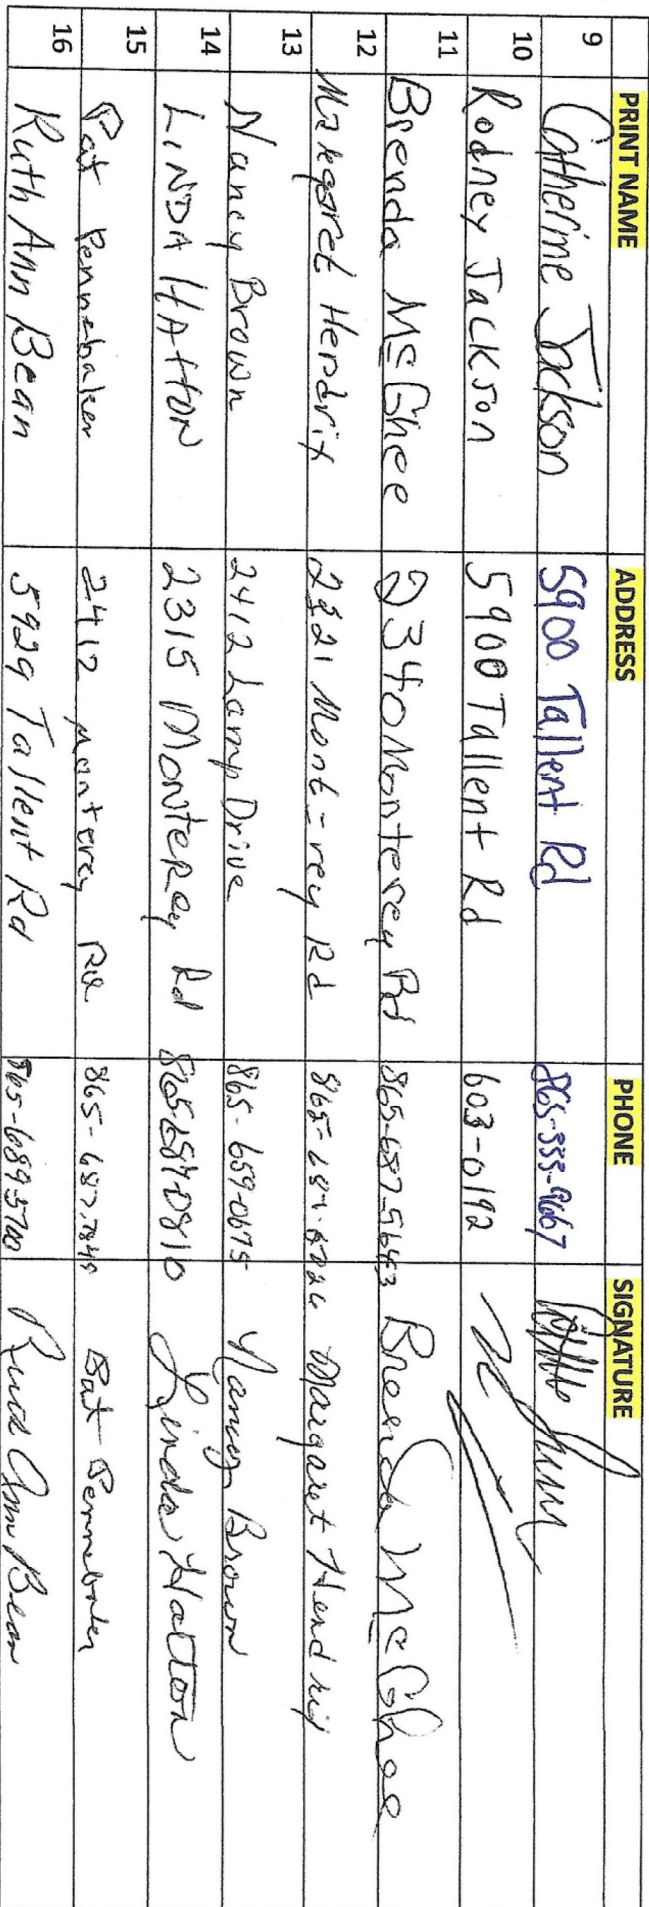 PRINT NAME ADDRESS PHONE SIGNATURE
9 Catherine Jackson 5900 Tallent Rd 865-335-9667
10 Rodney Jackson 5900 Tallent Rd 603-0192
11 Brenda McGhee 2340 Monterey Rd 865-687-5643 Brenda McGhee
12 Margaret Hendrix Rd Margaret Hendrix
13 Nancy Brown 2412 Lamp Drive 865-659-0675 Nancy Brown
14 LINDA HATTON 2315 Monterey Rd Linda Hatton
15 Pat Pennebaker 2412 Monterey Rd Pat Pennebaker
16 Ruth Ann Bean 5929 Tallent Rd 865-689-5700 Ruth Ann Bean